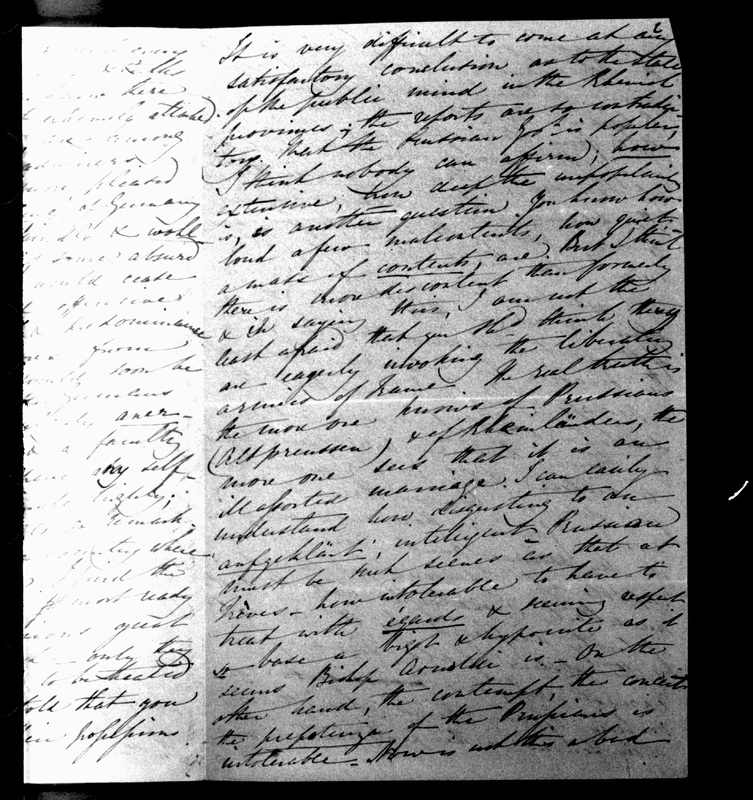 & to this
here
attached
are among
admirers
more pleased
of Germany
& world
some absurd
would cease
offensive
predominance
form
soon be
Germans
aner-
a faculty
very self-
highly;
is remark-
country where
find the
most ready
great
only they
to be treated
told that you
their possessions.
It is very difficult to come at any
satisfactory conclusion as to the state
of the public mind in the Rhenish
provinces; the reports are so contradic-
tory. That the Prussian Govt is popular,
I think nobody can affirm; how
extensive, how deep the unpopularity
is, is another question. You know how
loud a few malcontents, how quiet
a mass of contents, are. But I think
there is more discontent than formerly
& in saying this, I am not the
least afraid that you shd think they
are eagerly invoking the liberating
armies of France. The real truth is
the more one knows of Prussians
(Altpreussen), & of Rheinländers, the
more one sees that it is an
ill assorted marriage. I can easily
understand how disgusting to an
aufgeklärt, intelligent Prussian
must be such scenes as that at
Trèves – how intolerable to have to
treat with égards & seeming respect
so base a bigot & hypocrite as it
seems Bishop Arnoldi is – On the
other hand, the contempt, the conceit,
the prepotenza of the Prussians is
intolerable – Now is not this a bad